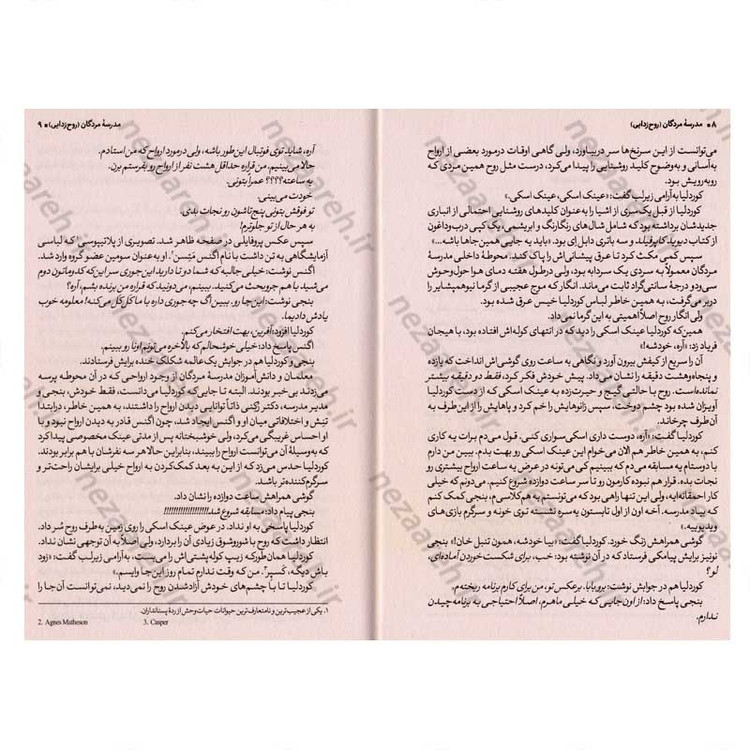 ۸ * مدرسهٔ مردگان (روح‌زدایی)
می‌توانست از این سرنخ‌ها سر دربیاورد، ولی گاهی اوقات درمورد بعضی از ارواح
به‌آسانی و به‌وضوح کلید روشنایی را پیدا می‌کرد، درست مثل روح همین مردی که
روبه‌رویش بود.
کوردلیا به‌آرامی زیرلب گفت: «عینک اسکی، عینک اسکی.»
کوردلیا از قبل یک سری از اشیا را به‌عنوان کلیدهای روشنایی احتمالی از انباری
جدیدشان برداشته بود که شامل شال‌های رنگارنگ و ابریشمی، یک کپی درب‌وداغون
از کتاب دیوید کاپرفیلد و سه باتری دابل اِی بود. «باید یه جایی همین‌جاها باشه...»
سپس کمی مکث کرد تا عرق پیشانی‌اش را پاک کند. محوطهٔ داخلی مدرسهٔ
مردگان معمولاً به سردی یک سردابه بود، ولی درطول هفته دمای هوا حول‌وحوش
سی‌ودو درجهٔ سانتی‌گراد ثابت می‌ماند. انگار که موج عجیبی از گرما نیوهمپشایر را
دربر می‌گرفت، به همین خاطر لباس کوردلیا خیس عرق شده بود.
ولی انگار روح اصلاً اهمیتی به این گرما نمی‌داد.
همین‌که کوردلیا عینک اسکی را دید که در انتهای کوله‌اش افتاده بود، با هیجان
فریاد زد: «آره، خودشه!»
آن را سریع از کیفش بیرون آورد و نگاهی به ساعت روی گوشی‌اش انداخت که یازده
و پنجاه‌وهشت دقیقه را نشان می‌داد. پیش خودش فکر کرد، فقط دو دقیقه بیشتر
نمانده‌است. روح با حالتی گیج و حیرت‌زده به عینک اسکی که از دست کوردلیا
آویزان شده بود چشم دوخت، سپس زانوهایش را خم کرد و پاهایش را از این‌طرف به
آن‌طرف چرخاند.
کوردلیا گفت: «آره، دوست داری اسکی‌سواری کنی. قول می‌دم برات یه کاری
کنم، به همین خاطر هم الان می‌خوام این عینک اسکی رو بهت بدم. ببین من دارم
با دوستام یه مسابقه می‌دم که ببینیم کی می‌تونه در عرض یه ساعت ارواح بیشتری رو
نجات بده. قرار هم نبوده کارمون رو تا سر ساعت دوازده شروع کنیم. می‌دونم که خیلی
کار احمقانه‌ایه، ولی این تنها راهی بود که می‌تونستم به هم‌کلاسیم، بنجی کمک کنم
که بیاد مدرسه. آخه اون از اول تابستون یه‌سره نشسته توی خونه و سرگرم بازی‌های
ویدیوییه.»
گوشی همراهش زنگ خورد. کوردلیا گفت: «بیا خودشه، همون تنبل خان!» بنجی
نونیز برایش پیامکی فرستاد که در آن نوشته بود: خب، برای شکست‌خوردن آماده‌ای،
لو؟
کوردلیا هم در جوابش نوشت: برو بابا. برعکس تو، من برای کارم برنامه ریخته‌م.
بنجی پاسخ داد: از اون جایی که خیلی ماهرم، اصلاً احتیاجی به برنامه‌چیدن
ندارم.
مدرسهٔ مردگان (روح‌زدایی) * ۹
آره، شاید توی فوتبال این‌طور باشه، ولی درمورد ارواح که من استادم.
حالا می‌بینیم. من قراره حداقل هشت نفر از ارواح رو بفرستم برن.
یه ساعته؟؟؟؟ عمراً بتونی.
خودت می‌بینی.
تو فوقش بتونی پنج‌تاشون رو نجات بدی.
به هر حال از تو جلوترم!
سپس عکس پروفایلی در صفحه ظاهر شد. تصویری از پلاتیپوسی۱ که لباسی
آزمایشگاهی به تن داشت با نام اگنس مَتِسن۲. او به‌عنوان سومین عضو گروه وارد شد.
اگنس نوشت: خیلی جالبه که شما دو تا دارید این‌جوری سر این‌که کدوماتون دوم
می‌شید با هم جروبحث می‌کنید. ببینم، می‌دونید که قراره من برنده بشم، آره؟
بنجی نوشت: این‌جا رو. ببین اگ چه‌جوری داره با ما کل‌کل می‌کنه! معلومه خوب
یادش دادیما.
کوردلیا افزود: آفرین، بهت افتخار می‌کنم.
اگنس پاسخ داد: خیلی خوشحالم که بالاخره می‌تونم اونا رو ببینم.
بنجی و کوردلیا هم در جوابش یک عالمه شکلک خنده برایش فرستادند.
معلمان و دانش‌آموزان مدرسهٔ مردگان از وجود ارواحی که در آن محوطه پرسه
می‌زدند بی‌خبر بودند. البته تا جایی‌که کوردلیا می‌دانست، فقط خودش، بنجی و
مدیر مدرسه، دکتر رُکنی ذاتاً توانایی دیدن ارواح را داشتند، به همین خاطر، درابتدا
تنش و اختلافاتی میان او و اگنس ایجاد شد، چون اگنس قادر به دیدن ارواح نبود و با
او احساس غریبگی می‌کرد، ولی خوشبختانه پس از مدتی عینک مخصوصی پیدا کرد
که به‌وسیلهٔ آن می‌توانست ارواح را ببیند، بنابراین حالا هر سه نفرشان با هم برابر بودند.
کوردلیا حدس می‌زد که از این به بعد کمک‌کردن به ارواح خیلی برایشان راحت‌تر و
سرگرم‌کننده‌تر باشد.
گوشی همراهش ساعت دوازده را نشان داد.
بنجی پیام داد: مسابقه شروع شد!!!!!!!!!!!!!!!!!!!!
کوردلیا پاسخی به او نداد. در عوض عینک اسکی را روی زمین به‌طرف روح سُر داد.
انتظار داشت که روح با شوروشوق زیادی آن را بردارد، ولی اصلاً به آن توجهی نشان نداد.
کوردلیا همان‌طور که زیپ کوله‌پشتی‌اش را می‌بست، به‌آرامی زیرلب گفت: «زود
باش دیگه، کَسپر۳. من که وقت ندارم تمام روز این‌جا وایسم.»
کوردلیا تا با چشم‌های خودش آزادشدن روح را نمی‌دید، نمی‌توانست آن‌جا را
۱. یکی از عجیب‌ترین و نامتعارف‌ترین حیوانات حیات‌وحش از ردهٔ پستانداران.
2. Agnes Matheson 3. Casper
nezaareh.ir